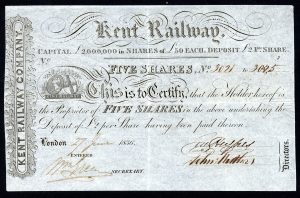 Kent Railway.
CAPITAL £2000,000 IN SHARES OF £50 EACH. DEPOSIT £2 Pr. SHARE
No
FIVE SHARES, No. 3091 to 3095
This is to Certify, that the Holder hereof is
the Proprietor of FIVE SHARES in the above undertaking the
Deposit of £2 per Share having been paid thereon.
London June 1836.
ENTERED
SECRETARY.
Directors.
KENT RAILWAY COMPANY.